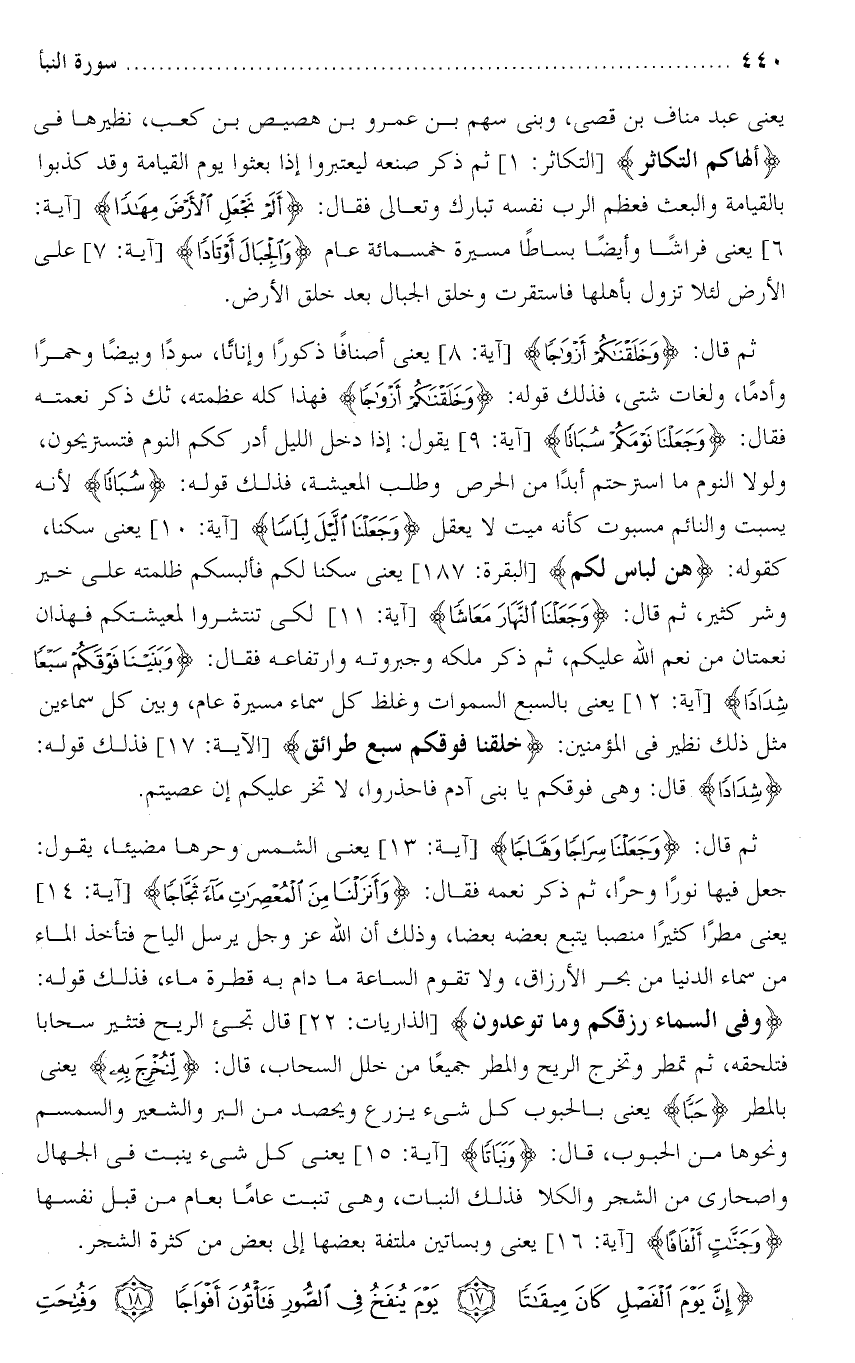 ٤٤٠ ........................................................................ سورة النبأ
يعنى عبد مناف بن قصى، وبنى سهم بن عمرو بن هصيص بن كعب، نظيرها فى
﴿ألهاكم التكاثر﴾ [التكاثر: ١] ثم ذكر صنعه ليعتبروا إذا بعثوا يوم القيامة وقد كذبوا
بالقيامة والبعث فعظم الرب نفسه تبارك وتعالى فقال: ﴿أَلَمْ نَجْعَلِ ٱلْأَرْضَ مِهَٰدًا﴾ [آية:
٦] يعنى فراشًا وأيضًا بساطًا مسيرة خمسمائة عام ﴿وَٱلْجِبَالَ أَوْتَادًا﴾ [آية: ٧] على
الأرض لئلا تزول بأهلها فاستقرت وخلق الجبال بعد خلق الأرض.
ثم قال: ﴿وَخَلَقْنَٰكُمْ أَزْوَٰجًا﴾ [آية: ٨] يعنى أصنافًا ذكورًا وإناثًا، سودًا وبيضًا وحمرًا
وأدمًا، ولغات شتى، فذلك قوله: ﴿وَخَلَقْنَٰكُمْ أَزْوَٰجًا﴾ فهذا كله عظمته، ثك ذكر نعمته
فقال: ﴿وَجَعَلْنَا نَوْمَكُمْ سُبَاتًا﴾ [آية: ٩] يقول: إذا دخل الليل أدر ككم النوم فتستريحون،
ولولا النوم ما استرحتم أبدًا من الحرص وطلب المعيشة، فذلك قوله: ﴿سُبَاتًا﴾ لأنه
يسبت والنائم مسبوت كأنه ميت لا يعقل ﴿وَجَعَلْنَا ٱلَّيْلَ لِبَاسًا﴾ [آية: ١٠] يعنى سكنا،
كقوله: ﴿هن لباس لكم﴾ [البقرة: ١٨٧] يعنى سكنا لكم فألبسكم ظلمته على خير
وشر كثير، ثم قال: ﴿وَجَعَلْنَا ٱلنَّهَارَ مَعَاشًا﴾ [آية: ١١] لكى تنتشروا لمعيشتكم فهذان
نعمتان من نعم الله عليكم، ثم ذكر ملكه وجبروته وارتفاعه فقال: ﴿وَبَنَيْنَا فَوْقَكُمْ سَبْعًا
شِدَادًا﴾ [آية: ١٢] يعنى بالسبع السموات وغلظ كل سماء مسيرة عام، وبين كل سماءين
مثل ذلك نظير فى المؤمنين: ﴿خلقنا فوقكم سبع طرائق﴾ [الآية: ١٧] فذلك قوله:
﴿شِدَادًا﴾ قال: وهى فوقكم يا بنى آدم فاحذروا، لا تخر عليكم إن عصيتم.
ثم قال: ﴿وَجَعَلْنَا سِرَاجًا وَهَّاجًا﴾ [آية: ١٣] يعنى الشمس وحرها مضيئا، يقول:
جعل فيها نورًا وحرًا، ثم ذكر نعمه فقال: ﴿وَأَنزَلْنَا مِنَ ٱلْمُعْصِرَٰتِ مَآءً ثَجَّاجًا﴾ [آية: ١٤]
يعنى مطرًا كثيرًا منصبا يتبع بعضه بعضا، وذلك أن الله عز وجل يرسل الياح فتأخذ الماء
من سماء الدنيا من بحر الأرزاق، ولا تقوم الساعة ما دام به قطرة ماء، فذلك قوله:
﴿وفى السماء رزقكم وما توعدون﴾ [الذاريات: ٢٢] قال تجئ الريح فتثير سحابا
فتلحقه، ثم تمطر وتخرج الريح والمطر جميعًا من خلل السحاب، قال: ﴿لِّنُخْرِجَ بِهِۦ﴾ يعنى
بالمطر ﴿حَبًّا﴾ يعنى بالحبوب كل شىء يزرع ويحصد من البر والشعير والسمسم
ونحوها من الحبوب، قال: ﴿وَنَبَاتًا﴾ [آية: ١٥] يعنى كل شىء ينبت فى الجهال
واصحارى من الشجر والكلا فذلك النبات، وهى تنبت عامًا بعام من قبل نفسها
﴿وَجَنَّٰتٍ أَلْفَافًا﴾ [آية: ١٦] يعنى وبساتين ملتفة بعضها إلى بعض من كثرة الشجر.
﴿إِنَّ يَوْمَ ٱلْفَصْلِ كَانَ مِيقَٰتًا ١٧ يَوْمَ يُنفَخُ فِى ٱلصُّورِ فَتَأْتُونَ أَفْوَاجًا ١٨ وَفُتِحَتِ